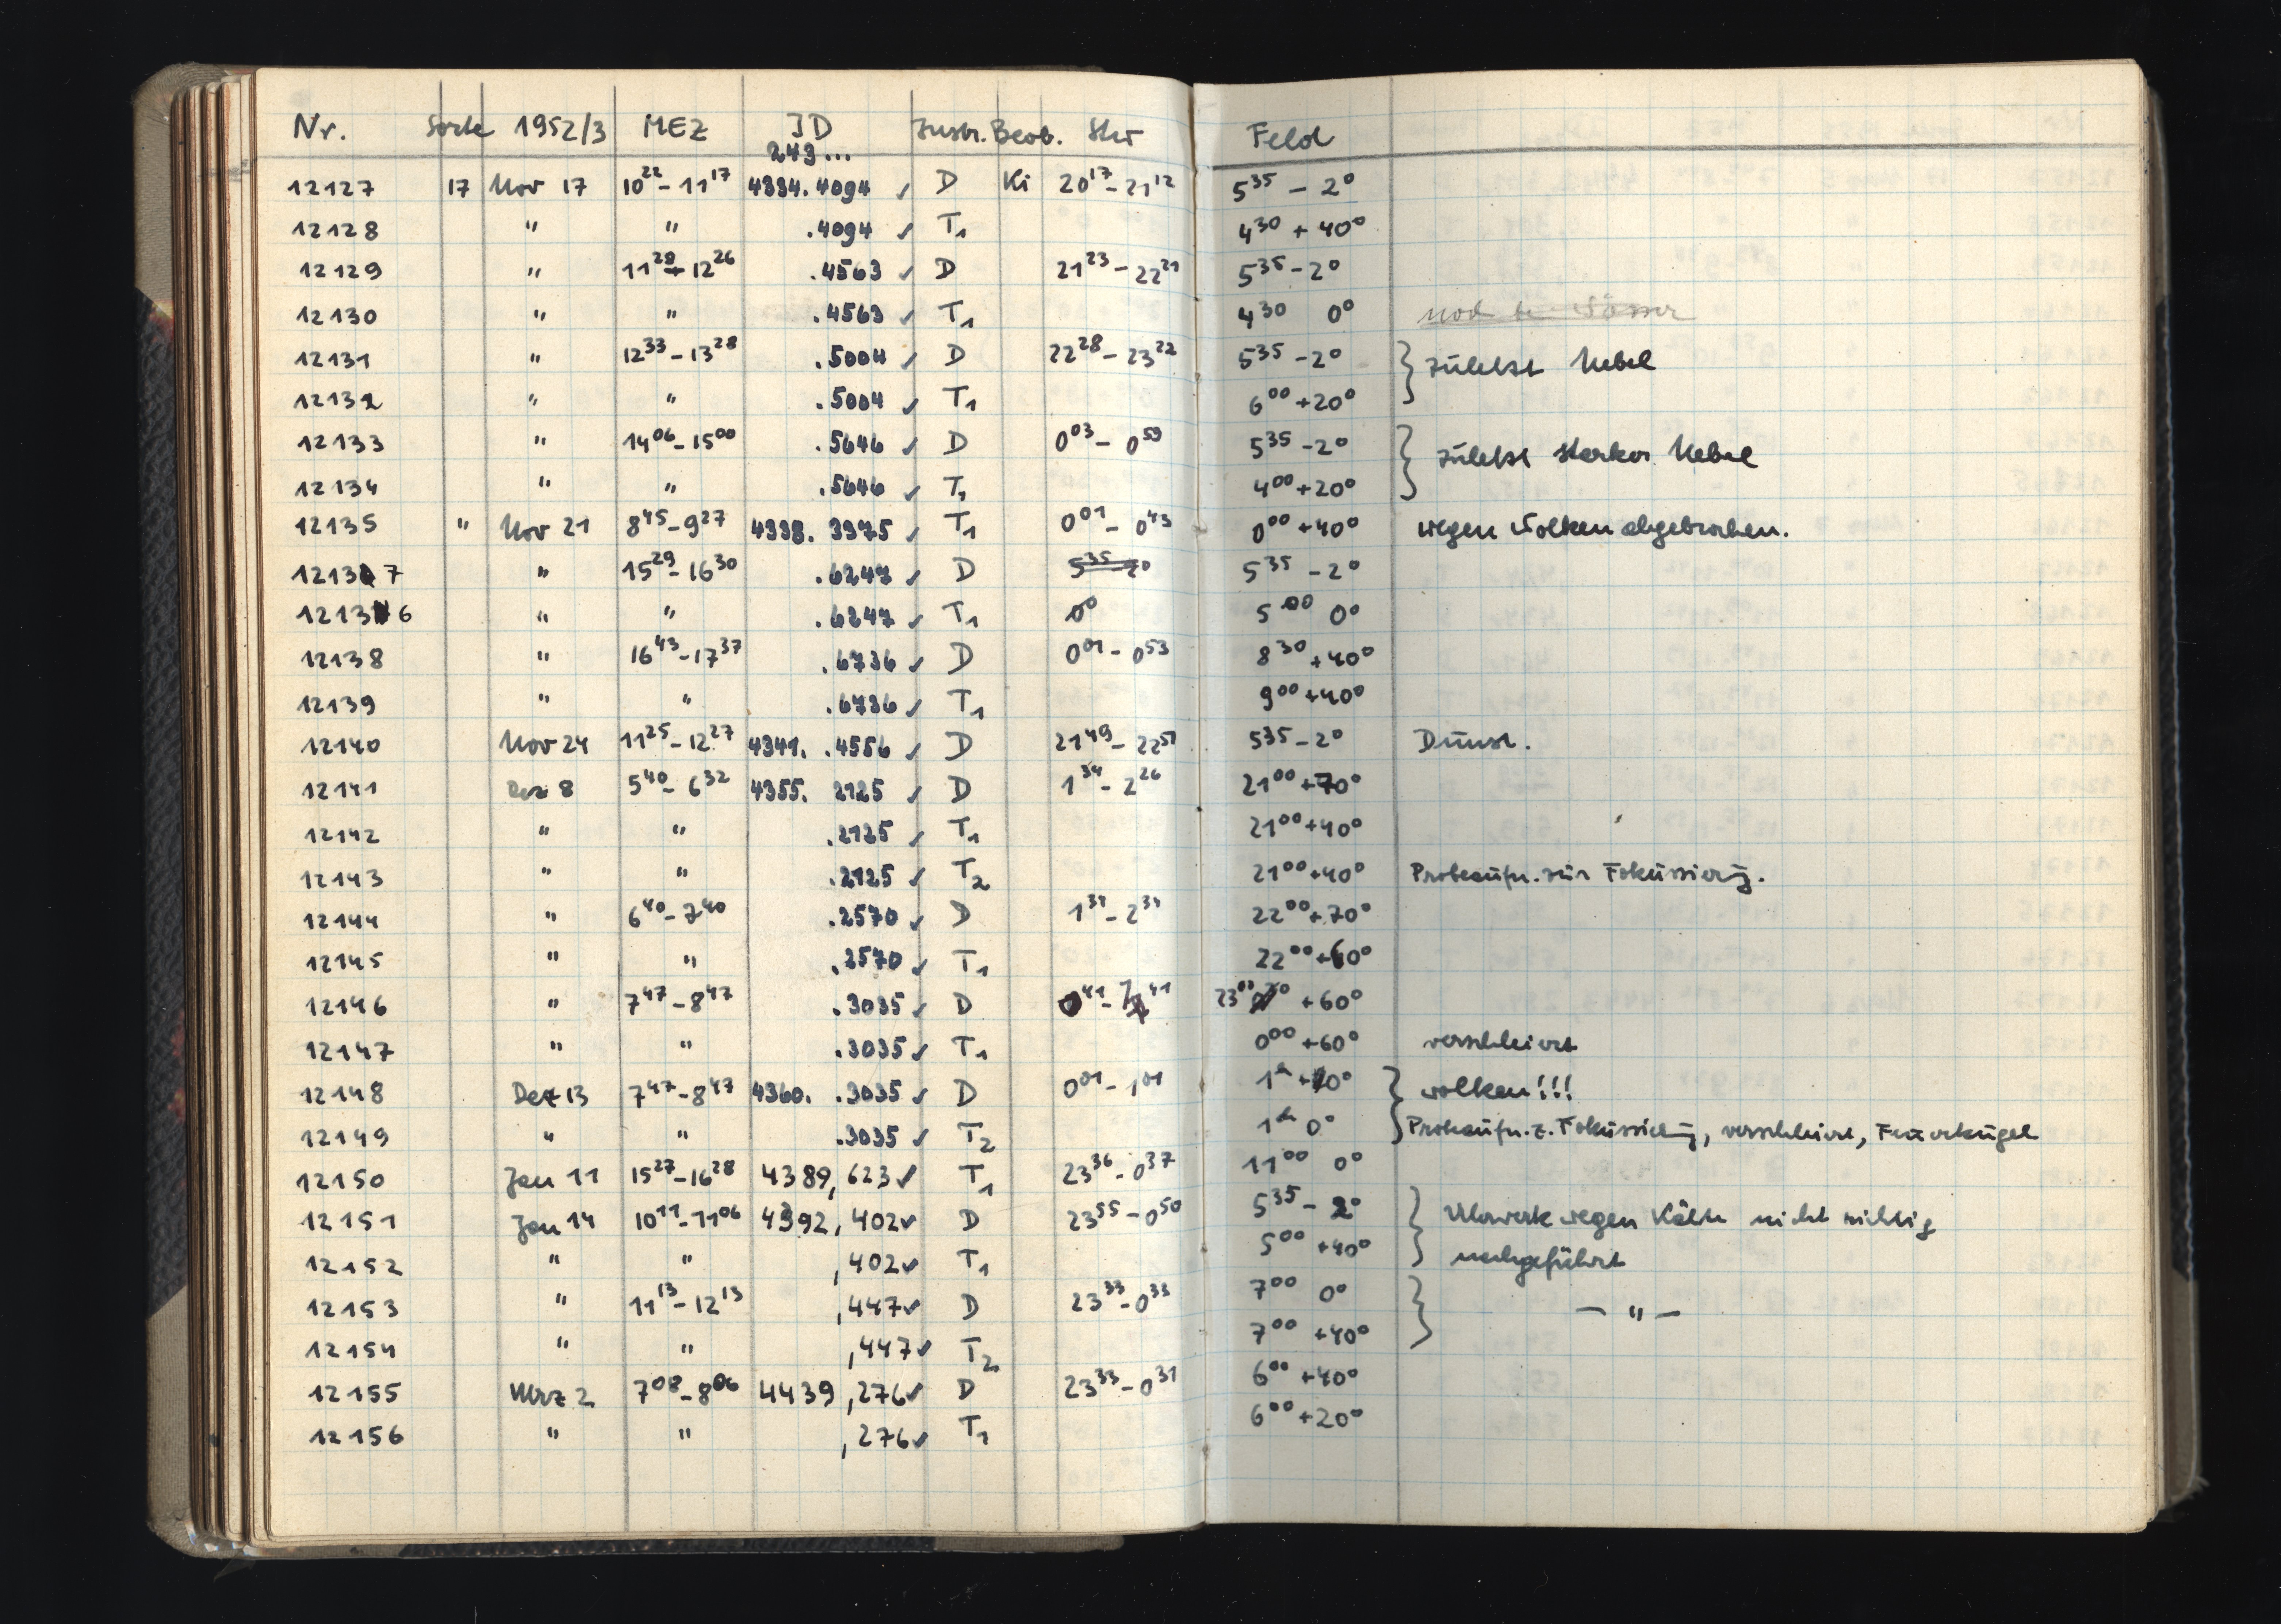 Nr. Sorte 1952/3 MEZ JD Instr. Beob. Stw Feld
243...
12127 17 Nov 17 10²²-11¹⁷ 4334.4094 ✓ D Ki 20¹⁷-21¹² 5³⁵ - 2°
12128 " " .4094 ✓ T₁ 4³⁰ + 40°
12129 " 11²⁸-12²⁶ .4563 ✓ D 21²³-22²¹ 5³⁵ - 2°
12130 " " .4563 ✓ T₁ 4³⁰ 0°
12131 " 12³³-13²⁸ .5004 ✓ D 22²⁸-23²² 5³⁵ - 2° } zuletzt Nebel
12132 " " .5004 ✓ T₁ 6⁰⁰ +20°
12133 " 14⁰⁶-15⁰⁰ .5646 ✓ D 0⁰³-0⁵⁹ 5³⁵ - 2° } zuletzt starker Nebel
12134 " " .5646 ✓ T₁ 4⁰⁰ +20°
12135 " Nov 21 8⁴⁵-9²⁷ 4338. 3375 ✓ T₁ 0⁰¹-0⁴³ 0⁰⁰ +40° wegen Wolken abgebrochen.
12137 " 15²⁹-16³⁰ .6247 ✓ D 5³⁵ 2° 5³⁵ - 2°
12136 " " .6247 ✓ T₁ 0⁰ 5⁰⁰ 0°
12138 " 16⁴³-17³⁷ .6736 ✓ D 0⁰¹-0⁵³ 8³⁰ +40°
12139 " " .6736 ✓ T₁ 9⁰⁰ +40°
12140 Nov 24 11²⁵-12²⁷ 4341. .4556 ✓ D 21⁴⁹-22⁵¹ 535 - 2° Dunst.
12141 Dez 8 5⁴⁰-6³² 4355. 2125 ✓ D 1³⁴-2²⁶ 21⁰⁰ +70°
12142 " " .2125 ✓ T₁ 21⁰⁰ +40°
12143 " " .2125 ✓ T₂ 21⁰⁰ +40° Probeaufn. zur Fokussierg.
12144 " 6⁴⁰-7⁴⁰ .2570 ✓ D 1³⁴-2³⁴ 22⁰⁰ +70°
12145 " " .2570 ✓ T₁ 22⁰⁰ +60°
12146 " 7⁴⁷-8⁴⁷ .3035 ✓ D 0⁴¹-1⁴¹ 23⁰⁰ +60°
12147 " " .3035 ✓ T₁ 0⁰⁰ +60° verschleiert
12148 Dez 13 7⁴⁷-8⁴⁷ 4360. .3035 ✓ D 0⁰¹-1⁰¹ 1ʰ } Wolken!!!
12149 " " .3035 ✓ T₂ 1ʰ 0° Probeaufn. z. Fokussierg, verschleiert, Feuerkugel
12150 Jan 11 15²⁷-16²⁸ 4389,623 ✓ T₁ 23³⁶-0³⁷ 11⁰⁰ 0°
12151 Jan 14 10¹¹-11⁰⁶ 4392,402 ✓ D 23⁵⁵-0⁵⁰ 5³⁵ - 2° } Uhrwerk wegen Kälte nicht richtig
12152 " " ,402 ✓ T₁ 5⁰⁰ +40° nachgeführt
12153 " 11¹³-12¹³ ,447 ✓ D 23³³-0³³ 7⁰⁰ 0° } — " —
12154 " " ,447 ✓ T₂ 7⁰⁰ +40°
12155 Mrz 2 7⁰⁸-8⁰⁶ 4439,276 ✓ D 23³³-0³¹ 6⁰⁰ +40°
12156 " " ,276 ✓ T₁ 6⁰⁰ +20°